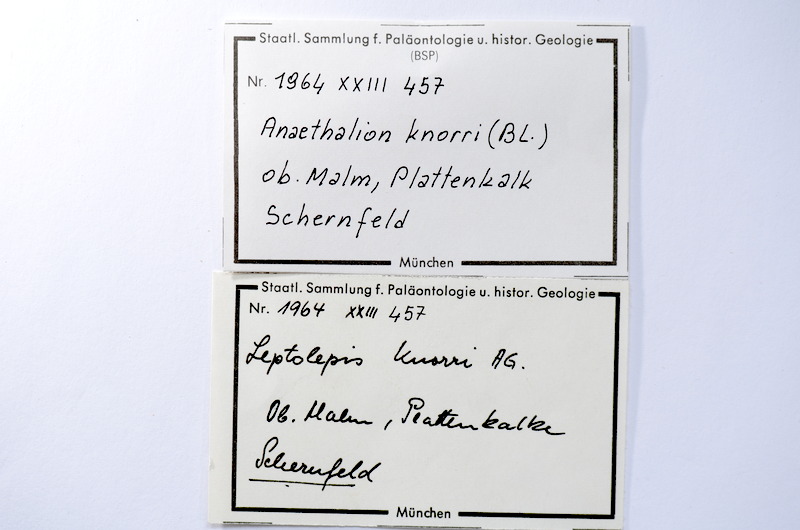 Staatl. Sammlung f. Paläontologie u. histor. Geologie
(BSP)
Nr. 1964 XXIII 457
Anaethalion knorri (BL.)
ob. Malm, Plattenkalk
Schernfeld
München
Staatl. Sammlung f. Paläontologie u. histor. Geologie
Nr. 1964 XXIII 457
Leptolepis Knorri AG.
Ob. Malm, Plattenkalke
Schernfeld
München